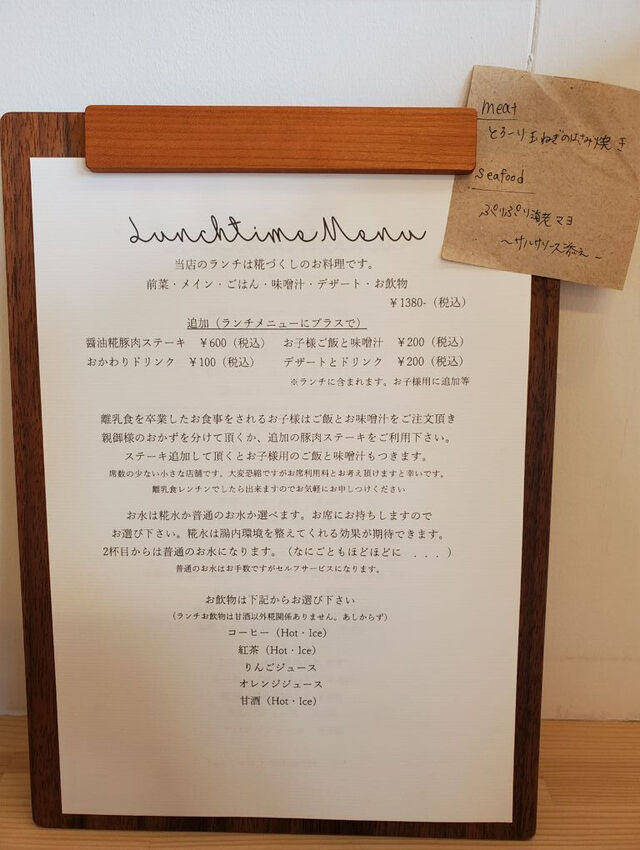 meat
とろーり玉ねぎのはさみ焼き
seafood
ぷりぷり海老マヨ
～サルサソース添え～
Lunchtime Menu
当店のランチは糀づくしのお料理です。
前菜・メイン・ごはん・味噌汁・デザート・お飲物
￥1380-（税込）
追加（ランチメニューにプラスで）
醤油糀豚肉ステーキ ￥600（税込） お子様ご飯と味噌汁 ￥200（税込）
おかわりドリンク ￥100（税込） デザートとドリンク ￥200（税込）
※ランチに含まれます。お子様用に追加等
離乳食を卒業したお食事をされるお子様はご飯とお味噌汁をご注文頂き
親御様のおかずを分けて頂くか、追加の豚肉ステーキをご利用下さい。
ステーキ追加して頂くとお子様用のご飯と味噌汁もつきます。
席数の少ない小さな店舗です。大変恐縮ですがお席利用料とお考え頂けますと幸いです。
離乳食レンチンでしたら出来ますのでお気軽にお申しつけください
お水は糀水か普通のお水か選べます。お席にお持ちしますので
お選び下さい。糀水は腸内環境を整えてくれる効果が期待できます。
2杯目からは普通のお水になります。（なにごともほどほどに ．．．）
普通のお水はお手数ですがセルフサービスになります。
お飲物は下記からお選び下さい
（ランチお飲物は甘酒以外糀関係ありません。あしからず）
コーヒー（Hot・Ice）
紅茶（Hot・Ice）
りんごジュース
オレンジジュース
甘酒（Hot・Ice）